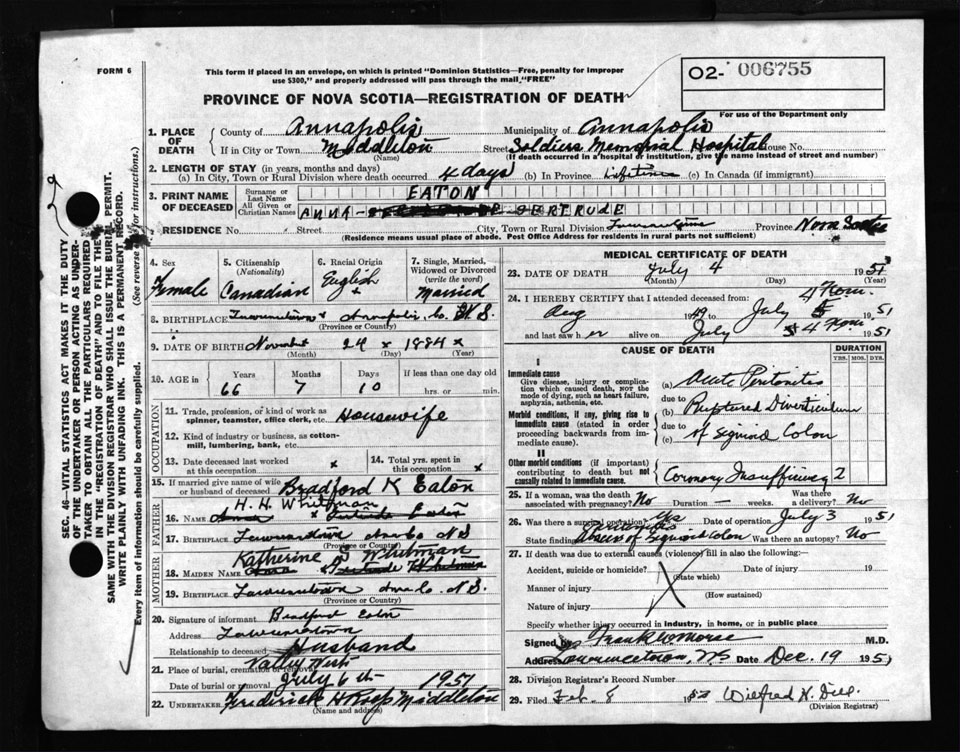 FORM 6
This form if placed in an envelope, on which is printed "Dominion Statistics—Free, penalty for improper
use $300," and properly addressed will pass through the mail, "FREE"
O2- 006755
PROVINCE OF NOVA SCOTIA—REGISTRATION OF DEATH
For use of the Department only
1. PLACE OF DEATH { County of Annapolis Municipality of Annapolis
If in City or Town Middleton Street Soldiers Memorial Hospital House No.
(Name) (If death occurred in a hospital or institution, give the name instead of street and number)
2. LENGTH OF STAY (in years, months and days)
(a) In City, Town or Rural Division where death occurred 4 days (b) In Province Lifetime (c) In Canada (if immigrant)
3. PRINT NAME OF DECEASED { Surname or Last Name EATON
All Given or Christian Names ANNA GERTRUDE
RESIDENCE No. Street City, Town or Rural Division Lawrencetown Province Nova Scotia
(Residence means usual place of abode. Post Office Address for residents in rural parts not sufficient)
4. Sex Female
5. Citizenship (Nationality) Canadian
6. Racial Origin English
7. Single, Married, Widowed or Divorced (write the word) Married
8. BIRTHPLACE Lawrencetown Annapolis Co. N.S.
(Province or Country)
9. DATE OF BIRTH November 24 1884
(Month) (Day) (Year)
10. AGE in Years Months Days If less than one day old
66 7 10 hrs. or min.
OCCUPATION
11. Trade, profession, or kind of work as spinner, teamster, office clerk, etc. Housewife
12. Kind of industry or business, as cotton-mill, lumbering, bank, etc.
13. Date deceased last worked at this occupation x
14. Total yrs. spent in this occupation x
15. If married give name of wife or husband of deceased Bradford K Eaton
FATHER
16. NAME H. H. Whitman
17. BIRTHPLACE Lawrencetown Anna Co. N S
(Province or Country)
MOTHER
18. MAIDEN NAME Katherine Whitman
19. BIRTHPLACE Lawrencetown Anna Co. N.S.
(Province or Country)
20. Signature of informant Bradford Eaton
Address Lawrencetown
Relationship to deceased Husband
21. Place of burial, cremation or removal Valley West
Date of burial or removal July 6th 1951
22. UNDERTAKER Frederick H Roop Middleton
(Name and address)
MEDICAL CERTIFICATE OF DEATH
23. DATE OF DEATH July 4 1951
(Month) (Day) (Year)
24. I HEREBY CERTIFY that I attended deceased from:
Aug 1949 to July 4 1951
and last saw her alive on July 4 1951
CAUSE OF DEATH
DURATION
YRS. MOS. DYS.
I
Immediate cause
Give disease, injury or complication which caused death, NOT the mode of dying, such as heart failure, asphyxia, asthenia, etc.
(a) Acute Peritonitis
due to
Morbid conditions, if any, giving rise to immediate cause (stated in order proceeding backwards from immediate cause).
(b) Ruptured Diverticulum
due to
(c) of Sigmoid Colon
II
Other morbid conditions (if important) contributing to death but not causally related to immediate cause.
Coronary Insufficiency 2
25. If a woman, was the death associated with pregnancy? No Duration — weeks. Was there a delivery? No
26. Was there a surgical operation? Yes Date of operation July 3 1951
State findings Abscess of Sigmoid Colon Was there an autopsy? No
27. If death was due to external causes (violence) fill in also the following:—
Accident, suicide or homicide? Date of injury 19
(State which)
Manner of injury
(How sustained)
Nature of injury
Specify whether injury occurred in industry, in home, or in public place
Signed by Frank W Morse M.D.
Address Lawrencetown, N S Date Dec. 19 1951
28. Division Registrar's Record Number
29. Filed Feb. 8 1952 Wilfred H. Dill
(Division Registrar)
SEC. 46—VITAL STATISTICS ACT MAKES IT THE DUTY
OF THE UNDERTAKER OR PERSON ACTING AS UNDER-
TAKER TO OBTAIN ALL THE PARTICULARS REQUIRED
IN THE "REGISTRATION OF DEATH" AND TO FILE THE
SAME WITH THE DIVISION REGISTRAR WHO SHALL ISSUE THE BURIAL PERMIT.
WRITE PLAINLY WITH UNFADING INK. THIS IS A PERMANENT RECORD.
Every item of information should be carefully supplied. (See reverse for instructions.)